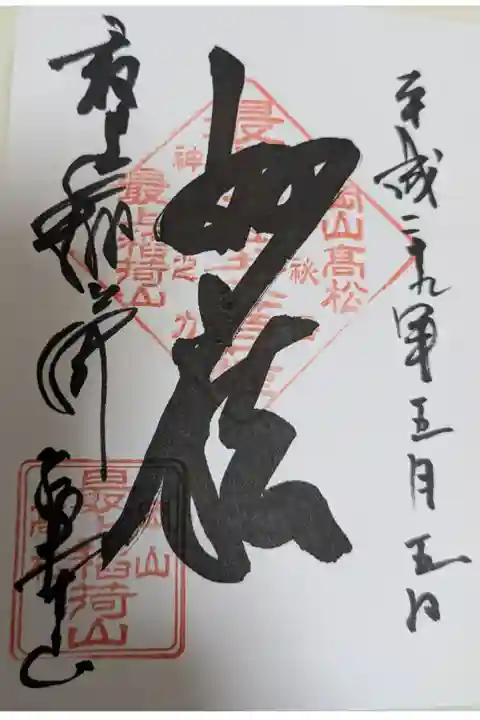 平成二十九年五月五日
妙法
岡山高松
神通之力
最上稲荷山
最上稲荷
岡山
最上稲荷山
高松